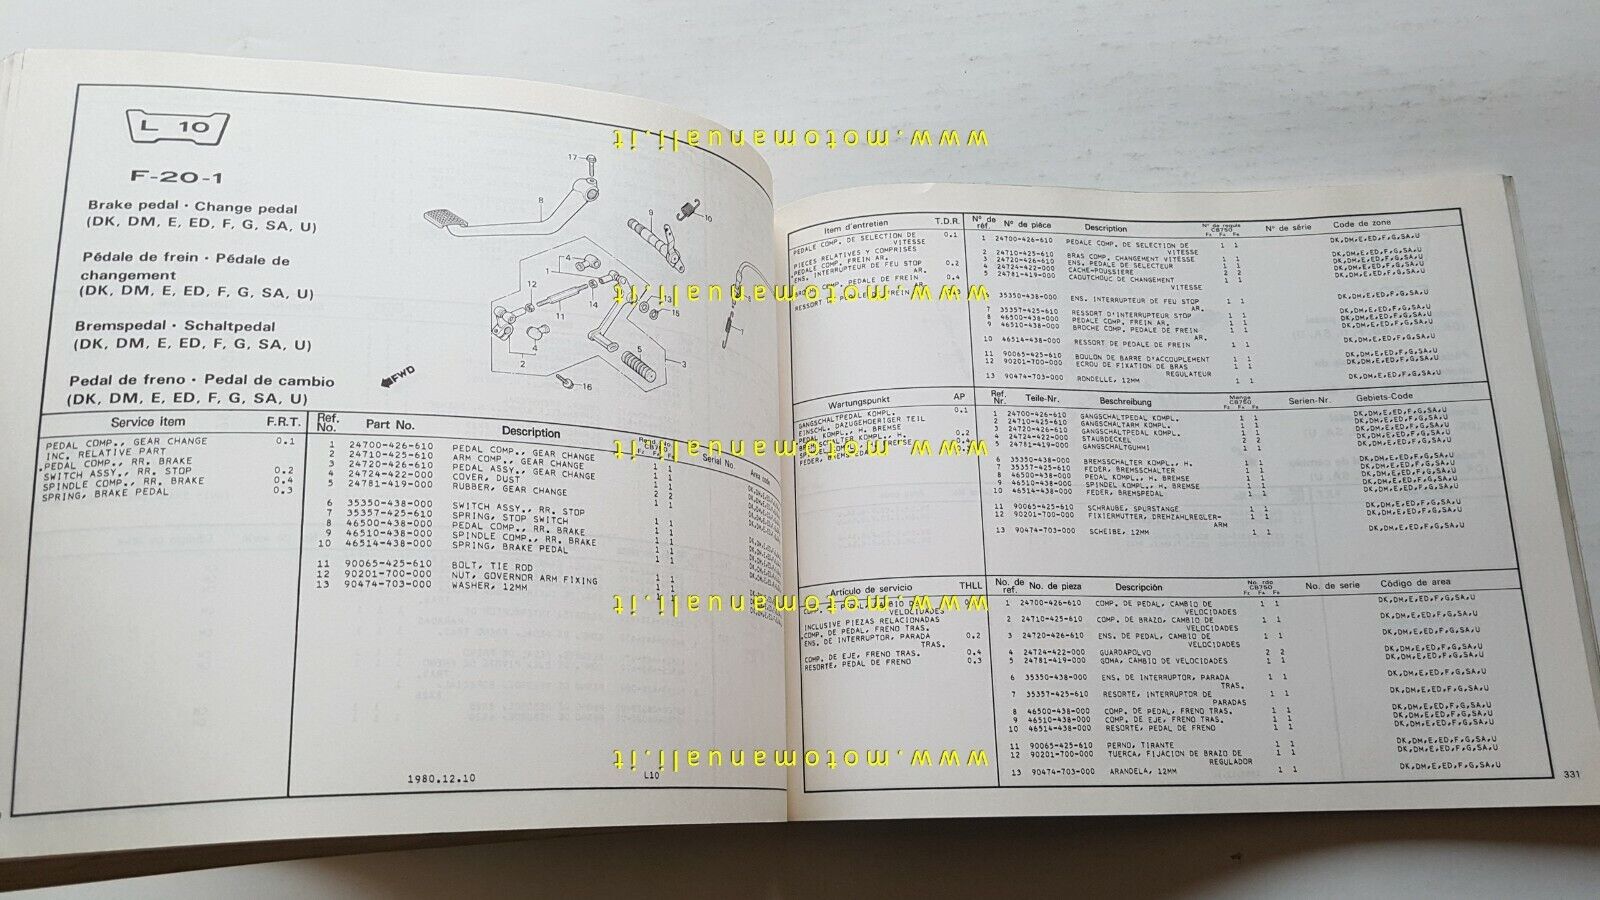 L 10
F-20-1
Brake pedal · Change pedal
(DK, DM, E, ED, F, G, SA, U)
Pédale de frein · Pédale de
changement
(DK, DM, E, ED, F, G, SA, U)
Bremspedal · Schaltpedal
(DK, DM, E, ED, F, G, SA, U)
Pedal de freno · Pedal de cambio
(DK, DM, E, ED, F, G, SA, U)
FWD
Service item F.R.T.
PEDAL COMP., GEAR CHANGE 0.1
INC. RELATIVE PART
PEDAL COMP., RR. BRAKE
SWITCH ASSY., RR. STOP 0.2
SPINDLE COMP., RR. BRAKE 0.4
SPRING, BRAKE PEDAL 0.3
Ref. No. Part No. Description Serial No. Area code
1 24700-426-610 PEDAL COMP., GEAR CHANGE 1 1
2 24710-425-610 ARM COMP., GEAR CHANGE 1 1
3 24720-426-610 PEDAL ASSY., GEAR CHANGE 1 1
4 24724-422-000 COVER, DUST 2 2
5 24781-419-000 RUBBER, GEAR CHANGE 1 1
6 35350-438-000 SWITCH ASSY., RR. STOP 1 1
7 35357-425-610 SPRING, STOP SWITCH 1 1
8 46500-438-000 PEDAL COMP., RR. BRAKE 1 1
9 46510-438-000 SPINDLE COMP., RR. BRAKE 1 1
10 46514-438-000 SPRING, BRAKE PEDAL 1 1
11 90065-425-610 BOLT, TIE ROD 1 1
12 90201-700-000 NUT, GOVERNOR ARM FIXING 1 1
13 90474-703-000 WASHER, 12MM 1 1
1980.12.10 L10
www.motomanuali.it
www.motomanuali.it
www.motomanuali.it
www.motomanuali.it
www.motomanuali.it
Item d'entretien T.D.R.
PEDALE COMP. DE SELECTION DE 0.1
VITESSE
PIECES RELATIVES Y COMPRISES
PEDALE COMP. FREIN AR.
ENS. INTERRUPTEUR DE FEU STOP 0.2
AR.
N° de réf. N° de pièce Description N° de série Code de zone
1 24700-426-610 PEDALE COMP. DE SELECTION DE 1 1 DK,DM,E,ED,F,G,SA,U
VITESSE
2 24710-425-610 BRAS COMP. CHANGEMENT VITESSE 1 1 DK,DM,E,ED,F,G,SA,U
3 24720-426-610 ENS. PEDALE DE SELECTEUR 1 1 DK,DM,E,ED,F,G,SA,U
4 24724-422-000 CACHE-POUSSIERE 2 2 DK,DM,E,ED,F,G,SA,U
5 24781-419-000 CAOUTCHOUC DE CHANGEMENT 1 1 DK,DM,E,ED,F,G,SA,U
VITESSE
6 35350-438-000 ENS. INTERRUPTEUR DE FEU STOP 1 1 DK,DM,E,ED,F,G,SA,U
AR.
7 35357-425-610 RESSORT D'INTERRUPTEUR STOP 1 1 DK,DM,E,ED,F,G,SA,U
8 46500-438-000 PEDALE COMP. FREIN AR. 1 1 DK,DM,E,ED,F,G,SA,U
9 46510-438-000 BROCHE COMP. PEDALE DE FREIN 1 1 DK,DM,E,ED,F,G,SA,U
AR.
10 46514-438-000 RESSORT DE PEDALE DE FREIN 1 1 DK,DM,E,ED,F,G,SA,U
11 90065-425-610 BOULON DE BARRE D'ACCOUPLEMENT 1 1 DK,DM,E,ED,F,G,SA,U
12 90201-700-000 ECROU DE FIXATION DE BRAS 1 1 DK,DM,E,ED,F,G,SA,U
REGULATEUR
13 90474-703-000 RONDELLE, 12MM 1 1 DK,DM,E,ED,F,G,SA,U
Wartungspunkt AP
GANGSCHALTPEDAL KOMPL. 0.1
EINSCHL. DAZUGEHOERIGER TEIL
PEDAL KOMPL., H. BREMSE
Ref. Nr. Teile-Nr. Beschreibung Menge CB750 Serien-Nr. Gebiets-Code
1 24700-426-610 GANGSCHALTPEDAL KOMPL. 1 1 DK,DM,E,ED,F,G,SA,U
2 24710-425-610 GANGSCHALTARM KOMPL. 1 1 DK,DM,E,ED,F,G,SA,U
3 24720-426-610 GANGSCHALTPEDAL KOMPL. 1 1 DK,DM,E,ED,F,G,SA,U
4 24724-422-000 STAUBDECKEL 2 2 DK,DM,E,ED,F,G,SA,U
5 24781-419-000 GANGSCHALTGUMMI 1 1 DK,DM,E,ED,F,G,SA,U
6 35350-438-000 BREMSSCHALTER KOMPL., H. 1 1 DK,DM,E,ED,F,G,SA,U
7 35357-425-610 FEDER, BREMSSCHALTER 1 1 DK,DM,E,ED,F,G,SA,U
8 46500-438-000 PEDAL KOMPL., H. BREMSE 1 1 DK,DM,E,ED,F,G,SA,U
9 46510-438-000 SPINDEL KOMPL., H. BREMSE 1 1 DK,DM,E,ED,F,G,SA,U
10 46514-438-000 FEDER, BREMSPEDAL 1 1 DK,DM,E,ED,F,G,SA,U
11 90065-425-610 SCHRAUBE, SPURSTANGE 1 1 DK,DM,E,ED,F,G,SA,U
12 90201-700-000 FIXIERMUTTER, DREHZAHLREGLER- 1 1 DK,DM,E,ED,F,G,SA,U
ARM
13 90474-703-000 SCHEIBE, 12MM 1 1 DK,DM,E,ED,F,G,SA,U
Artículo de servicio THLL
VELOCIDADES
INCLUSIVE PIEZAS RELACIONADAS
COMP. DE PEDAL, FRENO TRAS.
ENS. DE INTERRUPTOR, PARADA 0.2
TRAS.
COMP. DE EJE, FRENO TRAS. 0.4
RESORTE, PEDAL DE FRENO 0.3
No. de ref. No. de pieza Descripción No. rdo CB750 No. de serie Código de area
1 24700-426-610 COMP. DE PEDAL, CAMBIO DE 1 1 DK,DM,E,ED,F,G,SA,U
VELOCIDADES
2 24710-425-610 COMP. DE BRAZO, CAMBIO DE 1 1 DK,DM,E,ED,F,G,SA,U
VELOCIDADES
3 24720-426-610 ENS. DE PEDAL, CAMBIO DE 1 1 DK,DM,E,ED,F,G,SA,U
VELOCIDADES
4 24724-422-000 GUARDAPOLVO 2 2 DK,DM,E,ED,F,G,SA,U
5 24781-419-000 GOMA, CAMBIO DE VELOCIDADES 1 1 DK,DM,E,ED,F,G,SA,U
6 35350-438-000 ENS. DE INTERRUPTOR, PARADA 1 1 DK,DM,E,ED,F,G,SA,U
TRAS.
7 35357-425-610 RESORTE, INTERRUPTOR DE 1 1 DK,DM,E,ED,F,G,SA,U
PARADAS
8 46500-438-000 COMP. DE PEDAL, FRENO TRAS. 1 1 DK,DM,E,ED,F,G,SA,U
9 46510-438-000 COMP. DE EJE, FRENO TRAS. 1 1 DK,DM,E,ED,F,G,SA,U
10 46514-438-000 RESORTE, PEDAL DE FRENO 1 1 DK,DM,E,ED,F,G,SA,U
11 90065-425-610 PERNO, TIRANTE 1 1 DK,DM,E,ED,F,G,SA,U
12 90201-700-000 TUERCA, FIJACION DE BRAZO DE 1 1 DK,DM,E,ED,F,G,SA,U
REGULADOR
13 90474-703-000 ARANDELA, 12MM 1 1 DK,DM,E,ED,F,G,SA,U
331